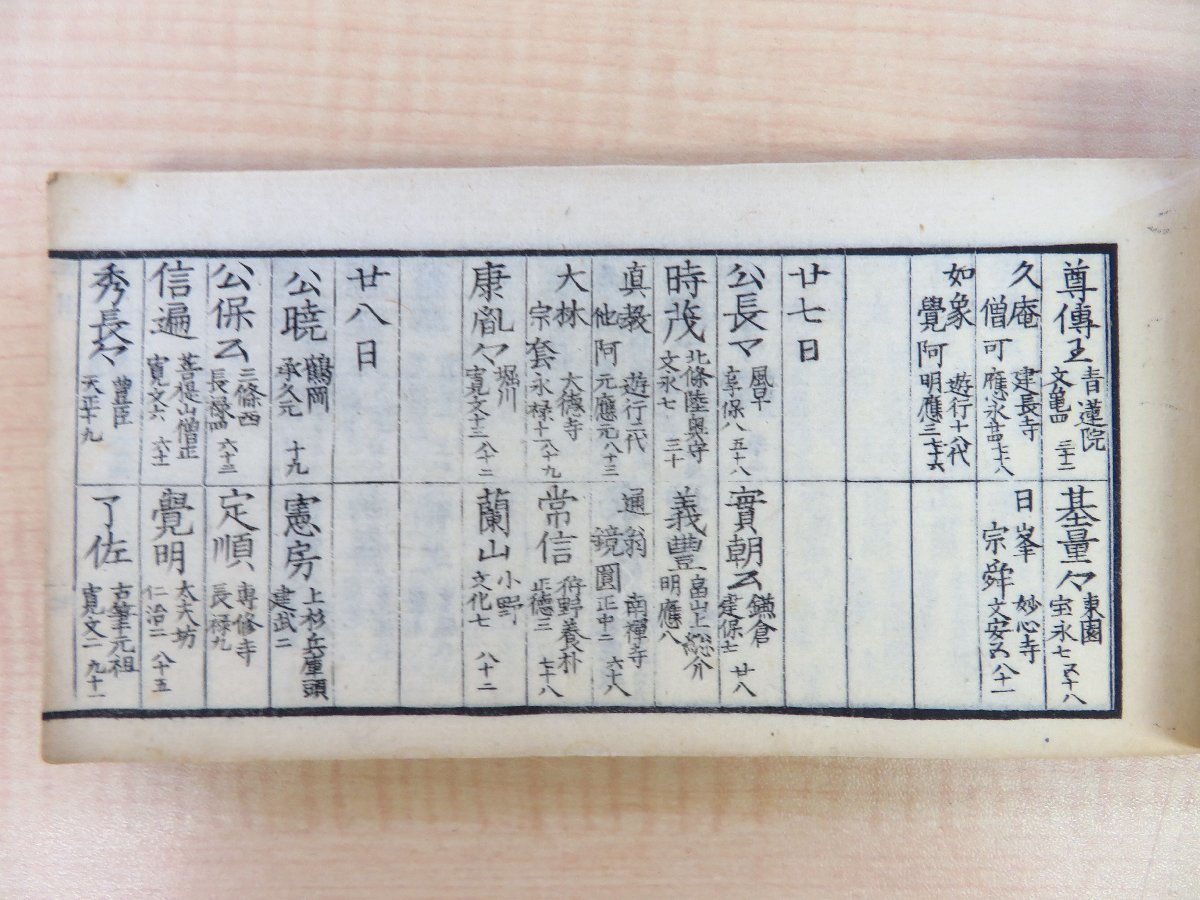 尊傳王 青蓮院 文亀四 三十二
久庵 僧可 建長寺 應永廿四 七十八
如象 覺阿 遊行十八代 明應三 七十六
廿七日
公長 風早 享保八 五十八
時茂 北條陸奥守 文永七 三十
真教 他阿 遊行二代 元應元 八十三
大林 宗套 大徳寺 永禄十一 八十九
康胤 堀川 寛文十三 八十二
廿八日
公曉 鶴岡 承久元 十九
公保公 三條西 長禄四 六十三
信遍 菩提山僧正 寛文六 六十一
秀長 豊臣 天正十九
基量 東園 宝永七 五十八
日峯 宗舜 妙心寺 文安五 八十一
實朝公 鎌倉 建保七 廿八
義豐 畠山上総介 明應八
通翁 鏡圓 南禪寺 正中二 六十八
常信 狩野養朴 正徳三 七十八
蘭山 小野 文化七 八十二
憲房 上杉兵庫頭 建武二
定順 専修寺 長禄九
覺明 太夫坊 仁治二 八十五
了佐 古筆元祖 寛文二 九十一